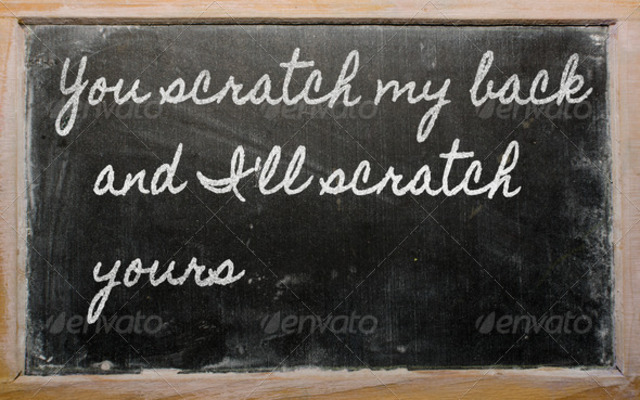 You scratch my back
and I'll scratch
yours
envato
envato
envato
envato
envato
envato